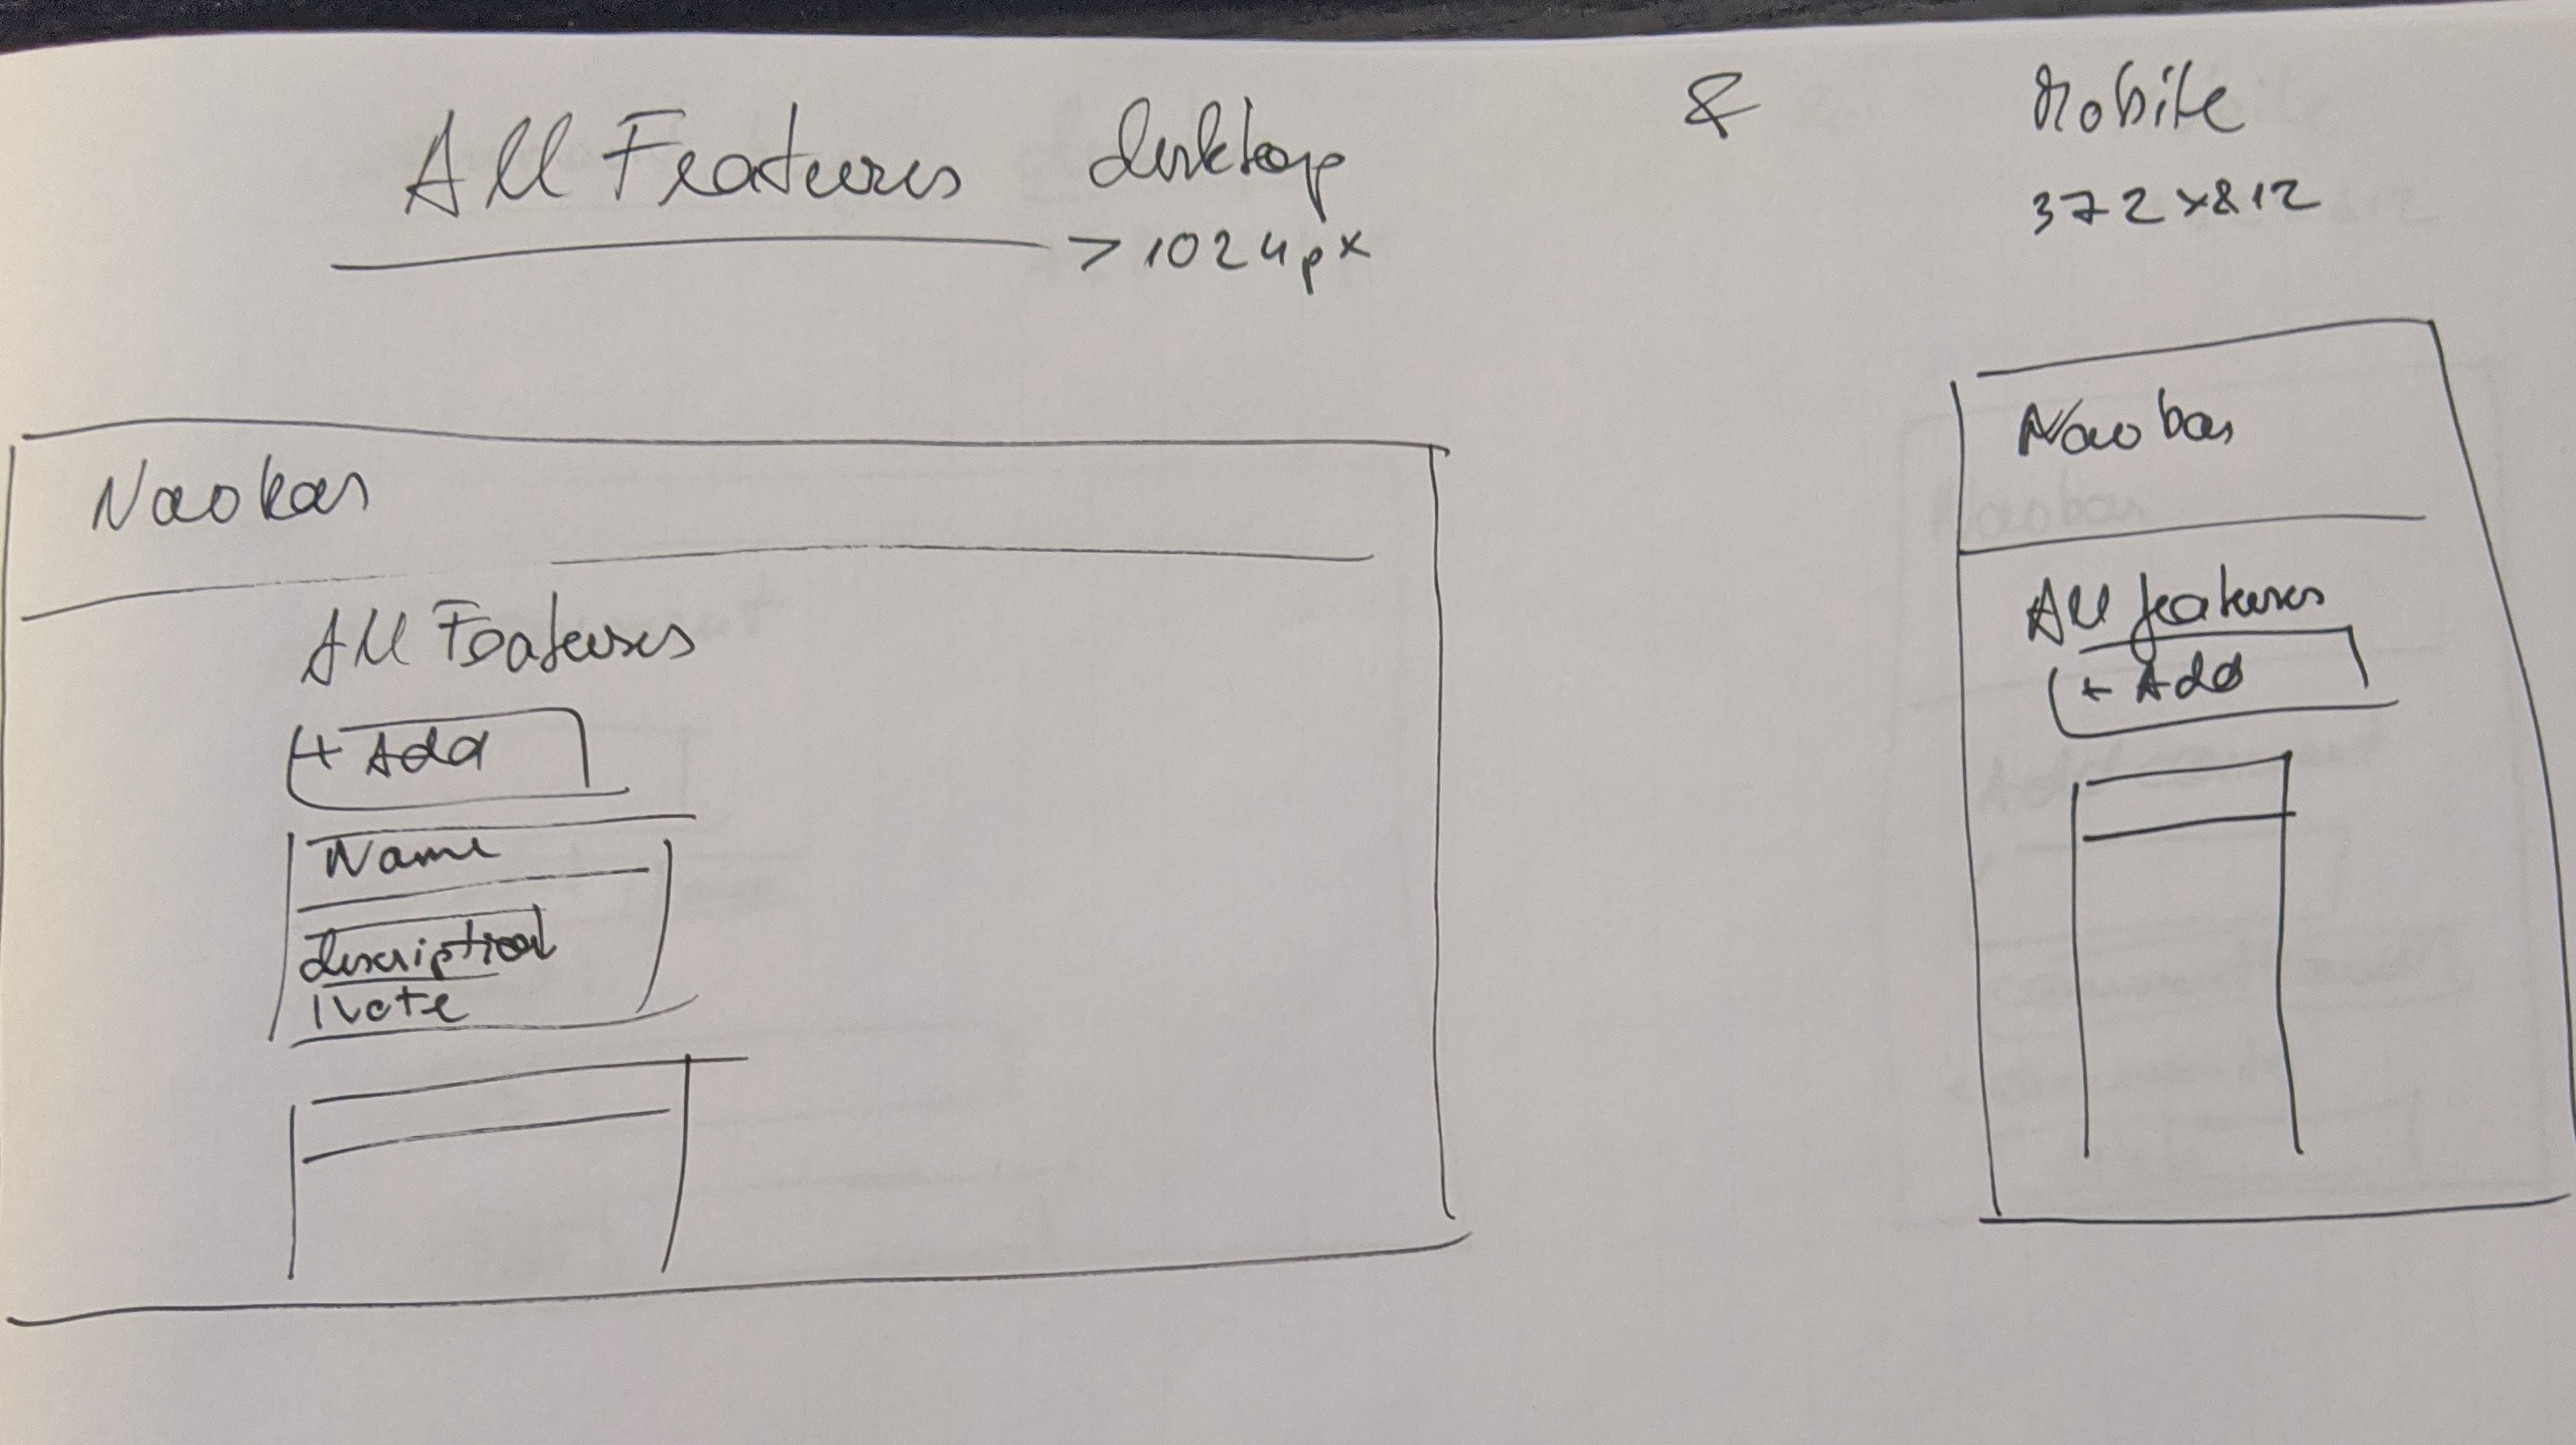 All Features desktop & Mobile
>1024px 372x812
Navbar
All Features
+ Add
Name
description
Note
Navbar
All features
+ Add